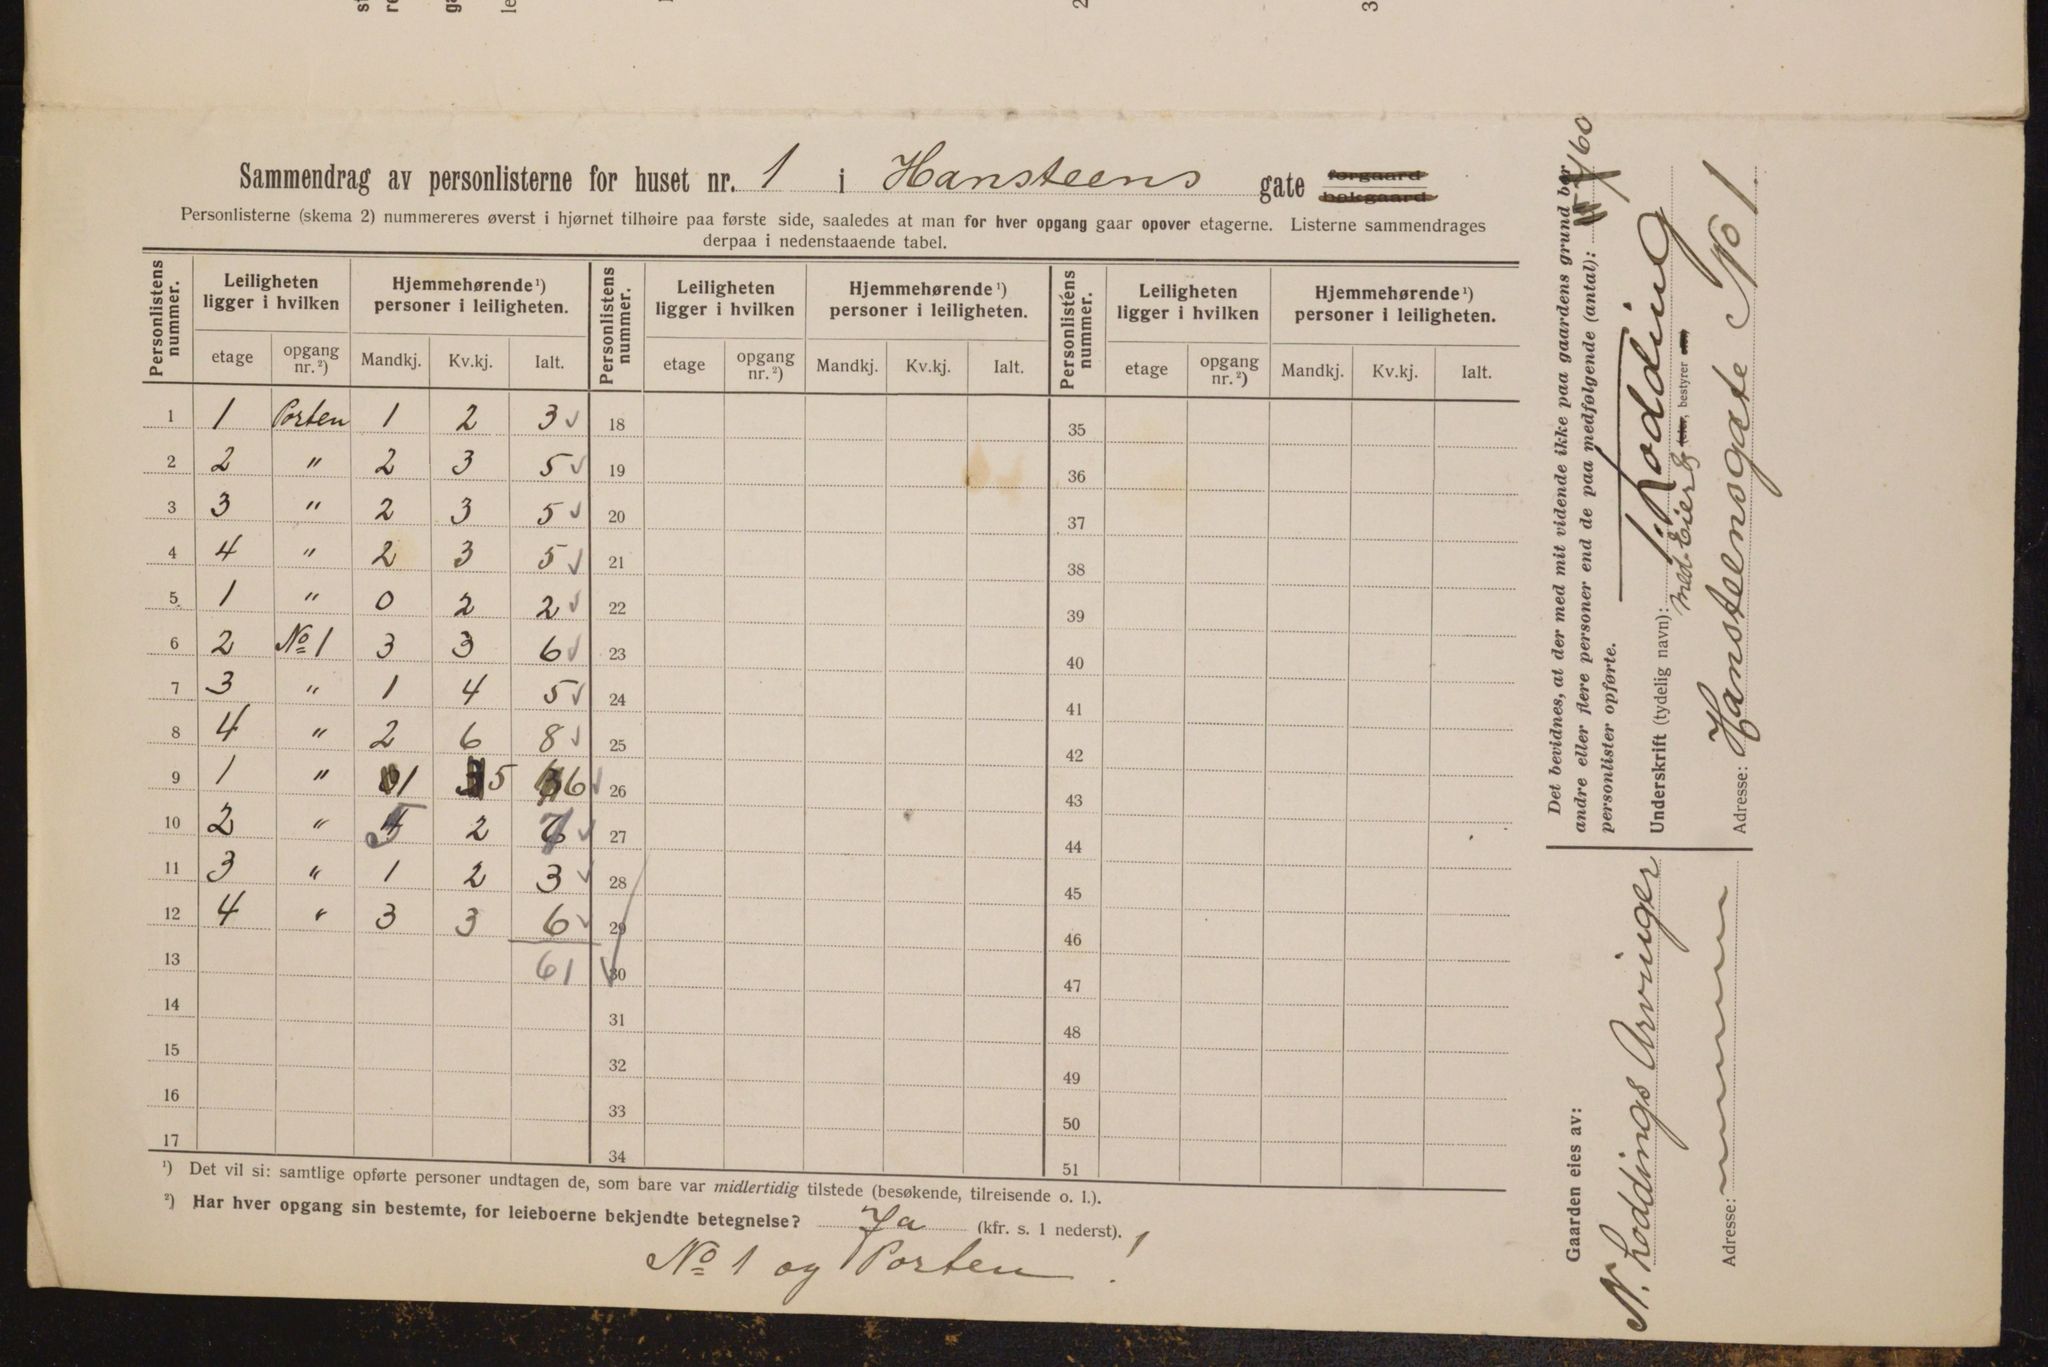 Sammendrag av personlisterne for huset nr. 1 i Hansteens gate forgaard bakgaard
Personlisterne (skema 2) nummereres øverst i hjørnet tilhøire paa første side, saaledes at man for hver opgang gaar opover etagerne. Listerne sammendrages
derpaa i nedenstaaende tabel.
Personlistens nummer. Leiligheten ligger i hvilken Hjemmehørende¹) personer i leiligheten. Personlistens nummer. Leiligheten ligger i hvilken Hjemmehørende¹) personer i leiligheten. Personlistens nummer. Leiligheten ligger i hvilken Hjemmehørende¹) personer i leiligheten.
etage opgang nr.²) Mandkj. Kv.kj. Ialt. etage opgang nr.²) Mandkj. Kv.kj. Ialt. etage opgang nr.²) Mandkj. Kv.kj. Ialt.
1 1 Porten 1 2 3 18 35
2 2 " 2 3 5 19 36
3 3 " 2 3 5 20 37
4 4 " 2 3 5 21 38
5 1 " 0 2 2 22 39
6 2 No 1 3 3 6 23 40
7 3 " 1 4 5 24 41
8 4 " 2 6 8 25 42
9 1 " 1 5 6 26 43
10 2 " 5 2 7 27 44
11 3 " 1 2 3 28 45
12 4 " 3 3 6 29 46
13 61 30 47
14 31 48
15 32 49
16 33 50
17 34 51
¹) Det vil si: samtlige opførte personer undtagen de, som bare var midlertidig tilstede (besøkende, tilreisende o. l.).
²) Har hver opgang sin bestemte, for leieboerne bekjendte betegnelse? Ja (kfr. s. 1 nederst).
No 1 og Porten.
Det bevidnes, at der med mit vidende ikke paa gaardens grund bor
andre eller flere personer end de paa medfølgende (antal): 60
personlister opførte.
Underskrift (tydelig navn): Lodding
med Eier & bestyrer
Adresse: Hansteensgate No 1.
Gaarden eies av:
N. Loddings Arvinger
Adresse: